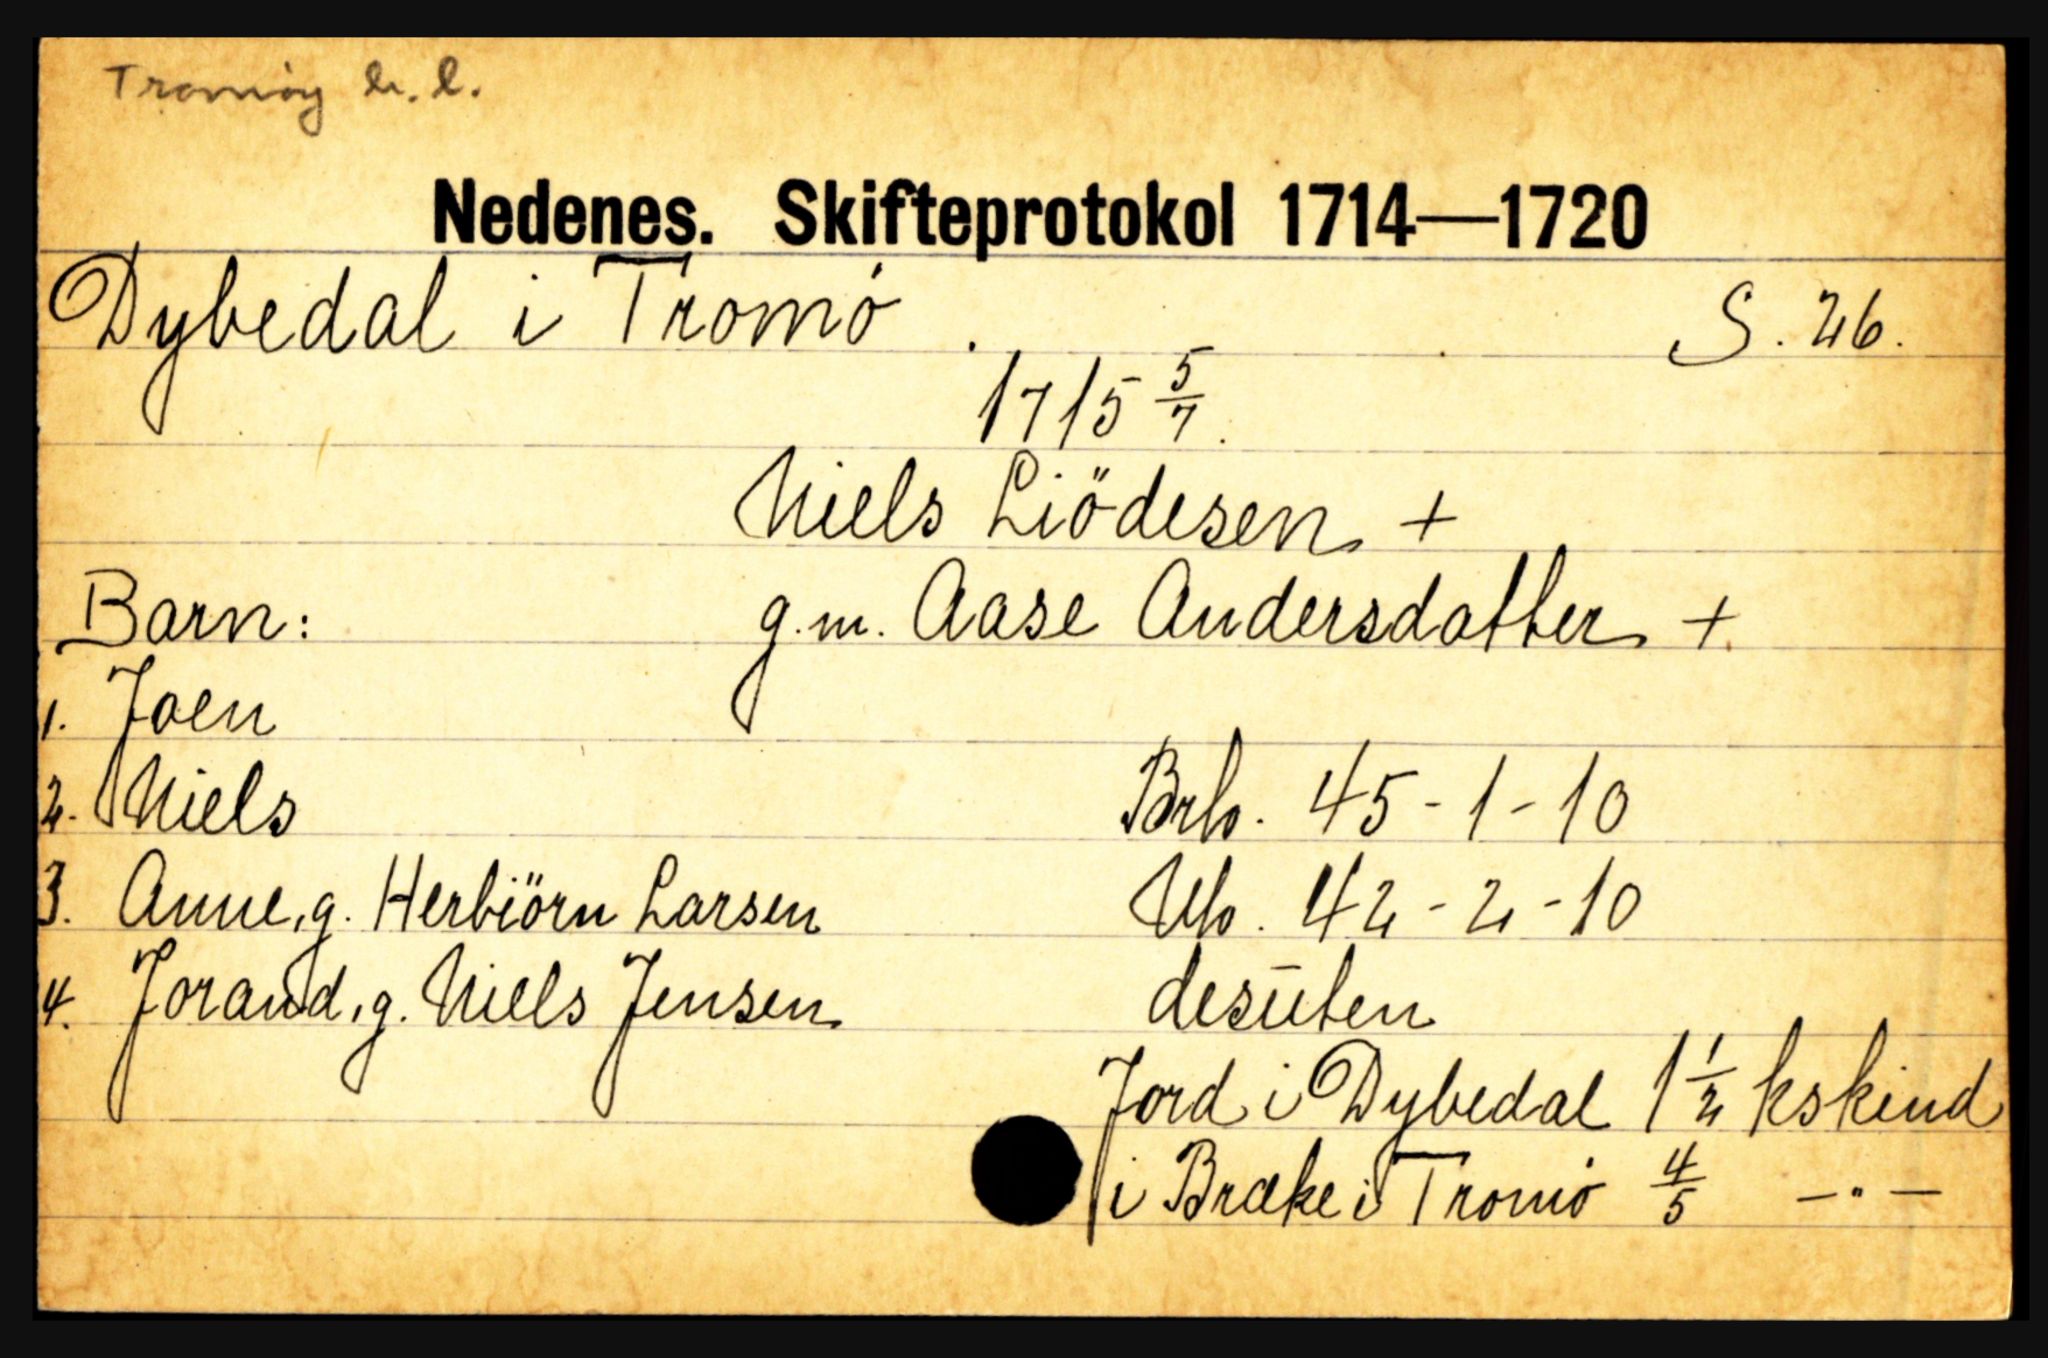 Tromöy h.l.
Nedenes. Skifteprotokol 1714—1720
Dybedal i Tromó. S. 26.
1715 5/7.
Niels Liödesen +
Barn: g.m. Aase Andersdatter +
1. Joen
2. Niels Brb. 45-1-10
3. Anne, g. Herbiörn Larsen Nb. 42-2-10
4. Jorand, g. Niels Jensen desūten
Jord i Dybedal 1 1/2 kskind
i Bræke i Tromó 4/5 —"—